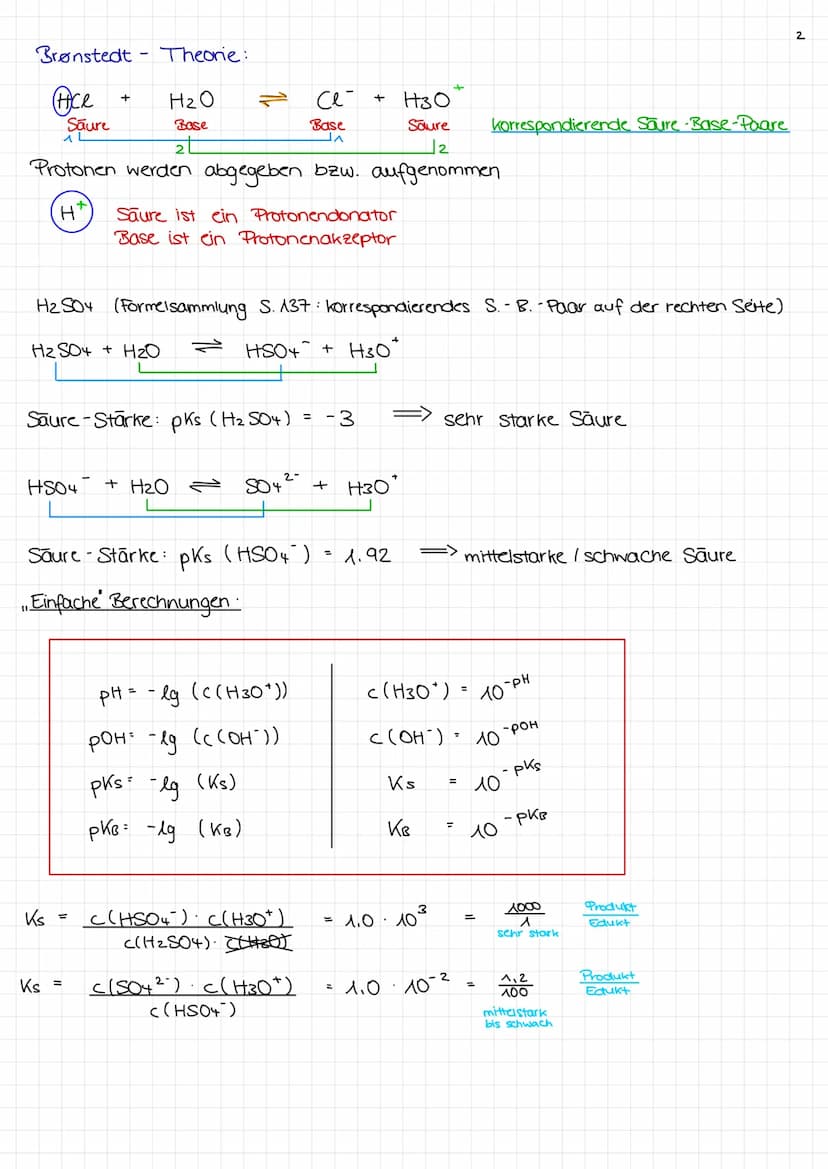 2
Brønstedt - Theorie:
HCl + H2O ⇌ Cl⁻ + H3O⁺
Säure Base Base Säure korrespondierende Säure-Base-Paare
1 1
2 2
Protonen werden abgegeben bzw. aufgenommen
H⁺ Säure ist ein Protonendonator
Base ist ein Protonenakzeptor
H2SO4 (Formelsammlung S. 137: korrespondierendes S.-B.-Paar auf der rechten Seite)
H2SO4 + H2O ⇌ HSO4⁻ + H3O⁺
Säure-Stärke: pKs (H2SO4) = -3 ⟹ sehr starke Säure
HSO4⁻ + H2O ⇌ SO4²⁻ + H3O⁺
Säure-Stärke: pKs (HSO4⁻) = 1.92 ⟹ mittelstarke / schwache Säure
„Einfache" Berechnungen:
pH = -lg (c(H3O⁺)) c(H3O⁺) = 10^-pH
pOH = -lg (c(OH⁻)) c(OH⁻) = 10^-pOH
pKs = -lg (Ks) Ks = 10^-pKs
pKB = -lg (KB) KB = 10^-pKB
Ks = c(HSO4⁻) · c(H3O⁺) / c(H2SO4) · c(H2O) = 1,0 · 10³ = 1000/1 Produkt/Edukt
sehr stark
Ks = c(SO4²⁻) · c(H3O⁺) / c(HSO4⁻) = 1,0 · 10⁻² = 1,2/100 Produkt/Edukt
mittelstark
bis schwach